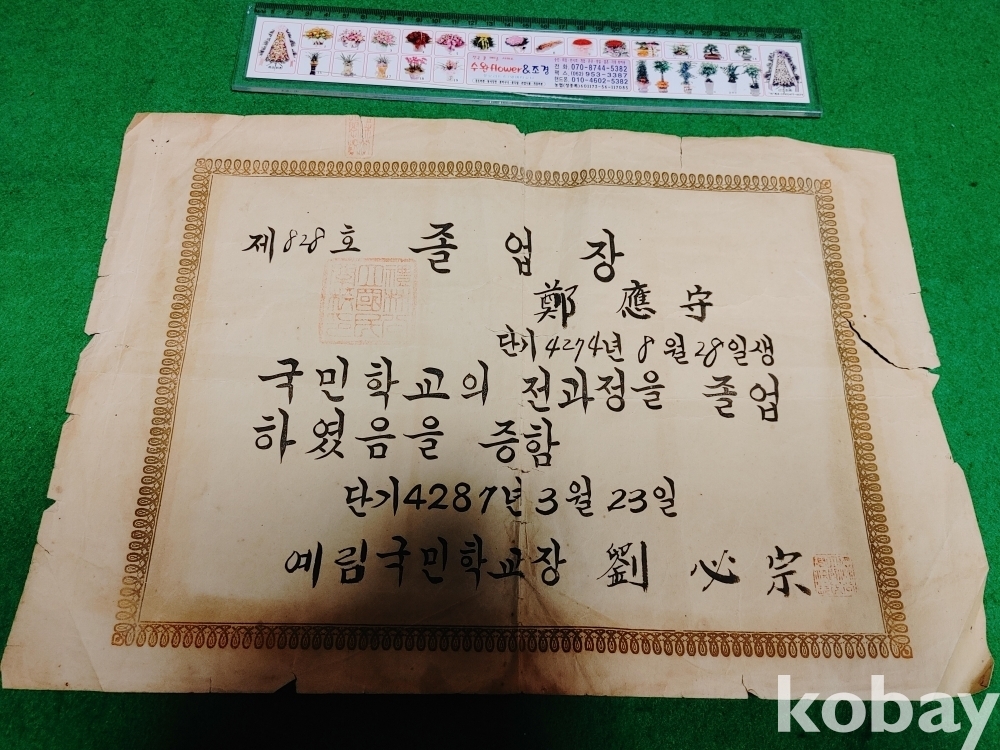 수완flower&조경
전 화 070-8744-5382
팩 스 (062) 953-3387
핸드폰 010-4602-5382
제828호 졸업장
鄭應守
단기 4274년 8월 28일생
국민학교의 전과정을 졸업
하였음을 증함
단기4287년 3월 23일
예림국민학교장 劉必宗
kobay